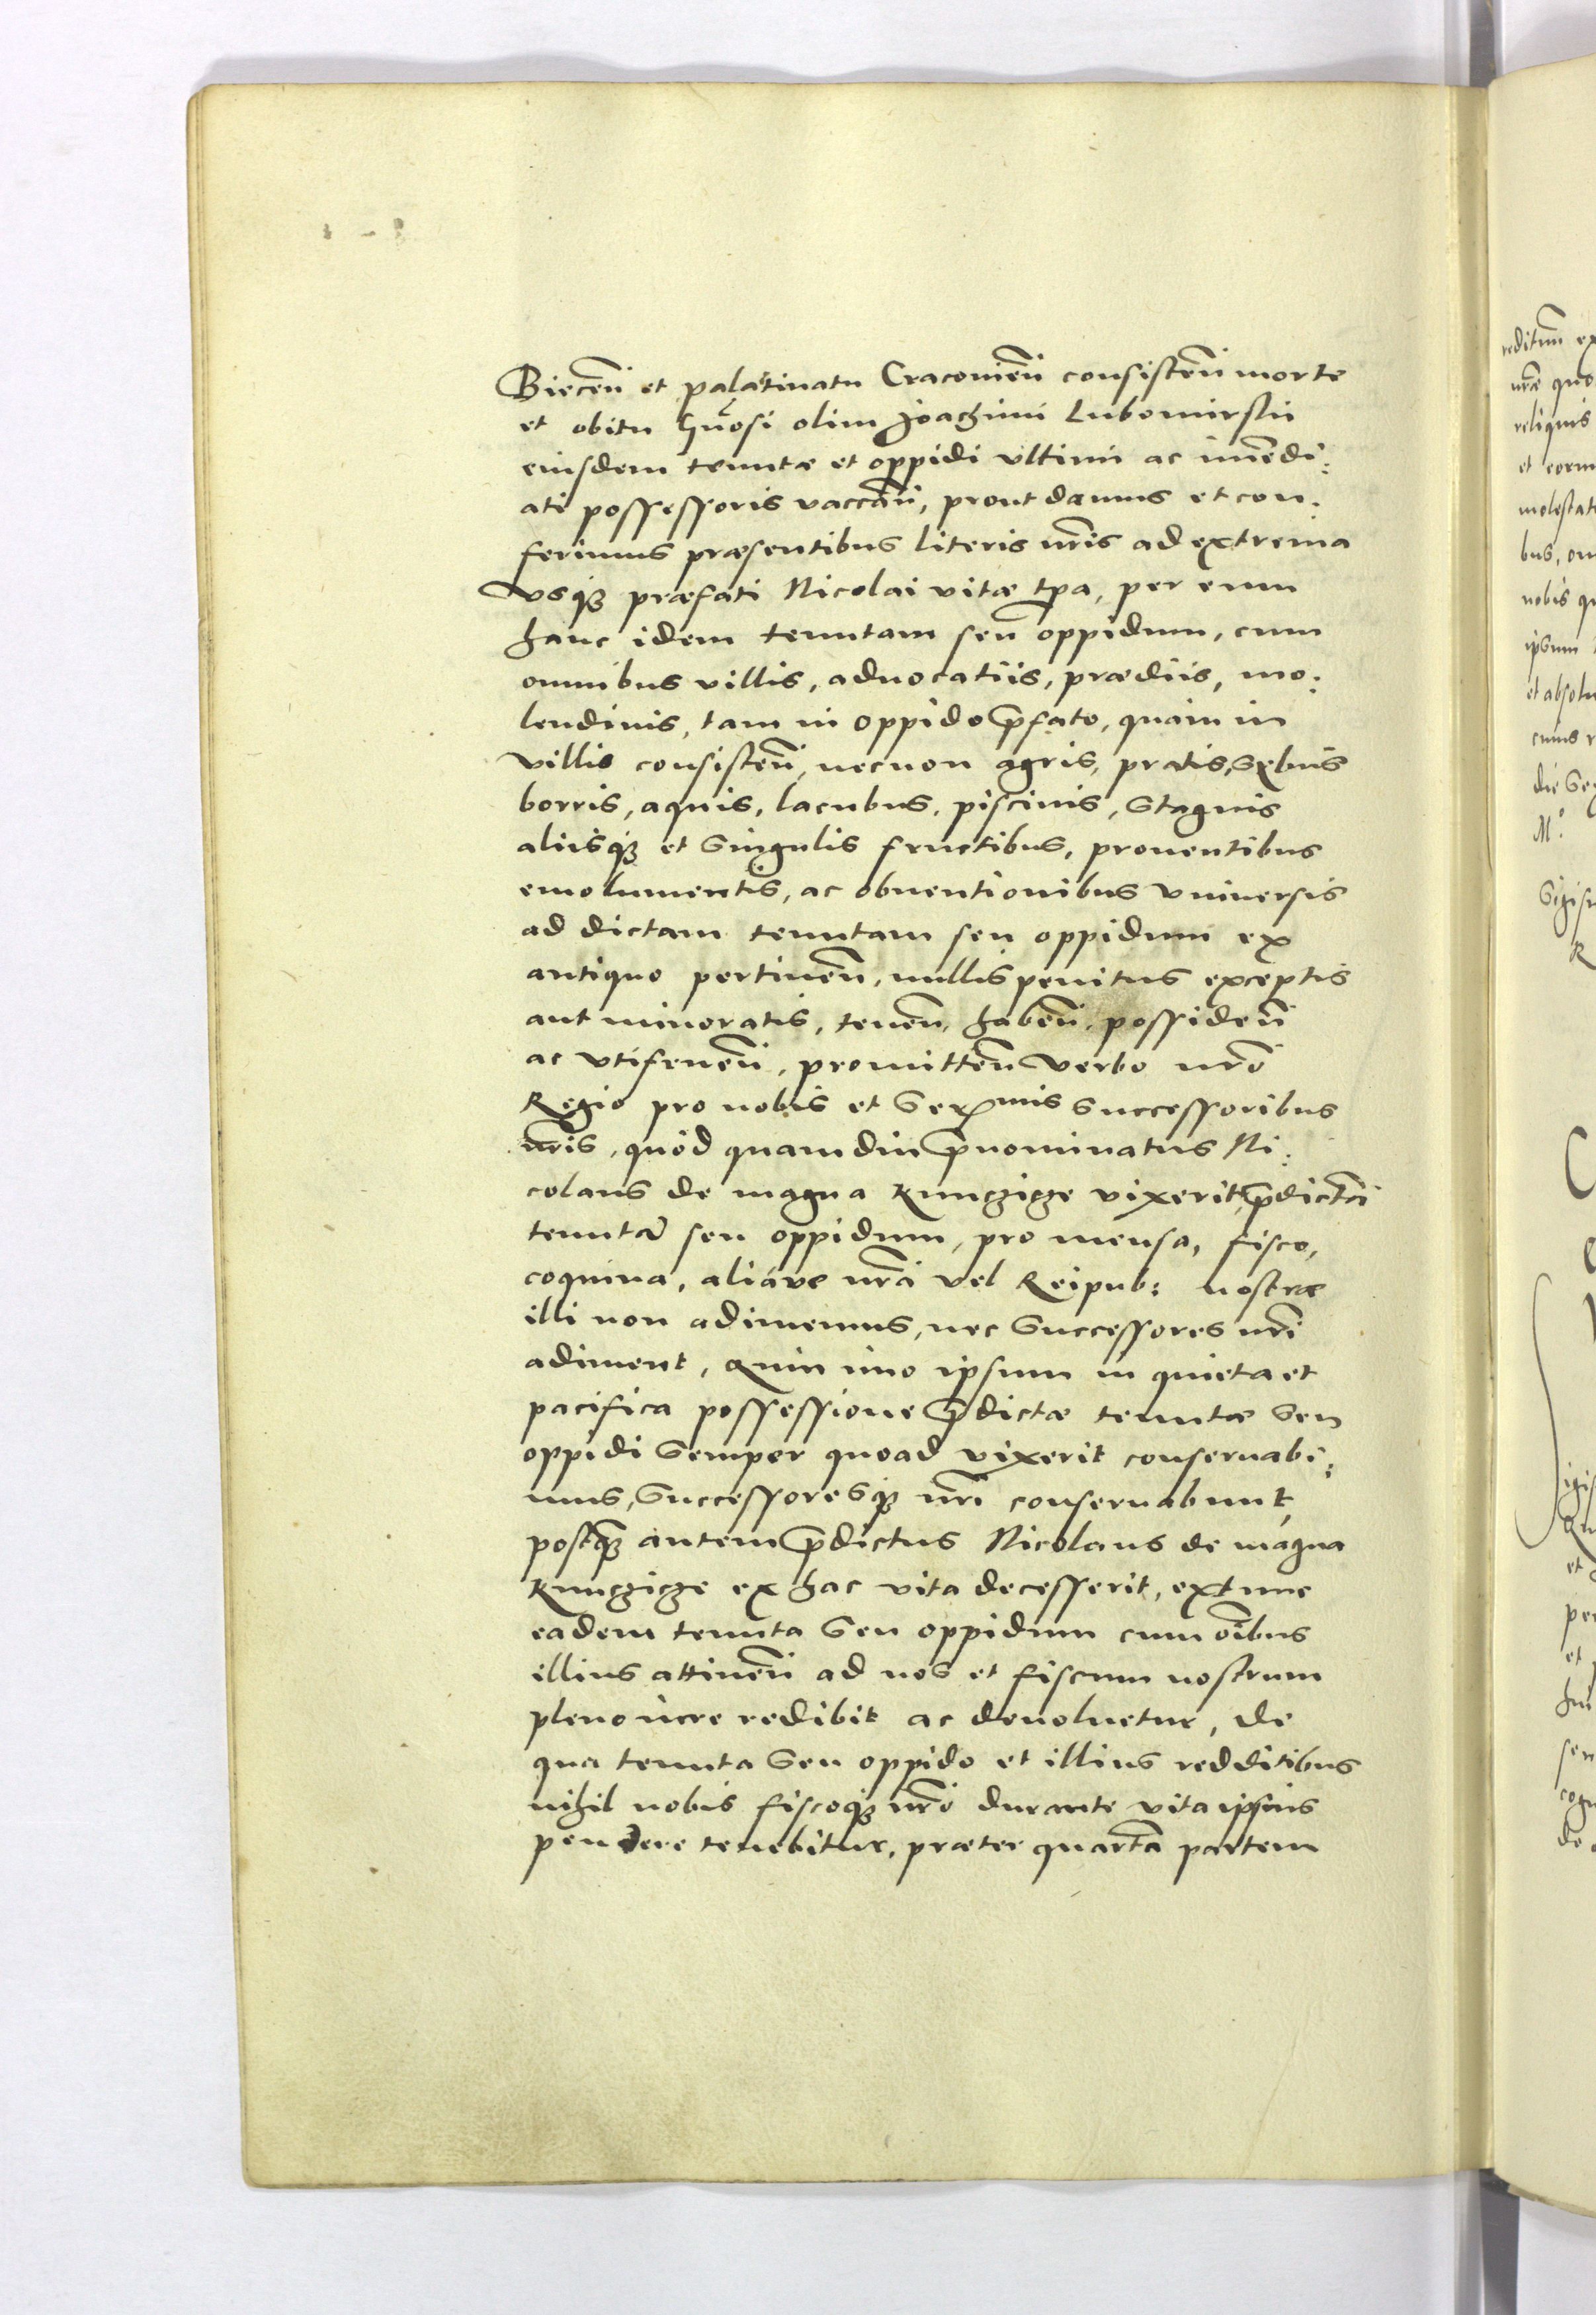 Biecen̄ et palatinatu Cracovien̄ consisten̄ morte
et obitu Gn̄osi olim Joachimi Lubomirskii
eiusdem tenutæ et oppidi ultimi ac im̄edi:
ati possessoris vaccan̄, prout damus et con:
ferimus præsentibus literis nr̄is ad extrema
vsq3 præfati Nicolai vitæ tp̄a, per eum
hanc idem tenutam seu oppidum, cum
omnibus villis, aduocatiis, prædiis, mo:
lendinis, tam in oppido p̄fato, quàm in
villis consisten̄, necnon agris, pratis,
borris, aquis, lacubus, piscinis, stagnis
aliisq3 et singulis fructibus, prouentibus
emolumentis, ac obuentionibus vniuersis
ad dictam tenutam seu oppidum ex
antiquo pertinen̄, nullis penitus exceptis
aut minoratis, tenen̄, haben̄, possiden̄
ac vtifruen̄, promitten̄ verbo nr̄o
Regio pro nobis et Sermis successoribus
nr̄is, quòd quamdiu p̄nominatus Ni:
colaus de magna Kunczicze vixerit, p̄dictā
tenutā seu oppidum, pro mensa, fisco,
coquina, aliave nr̄a vel Reipub: nostræ
illi non adimemus, nec successores nr̄i
adiment, quin imo ipsum in quieta et
pacifica possessione p̄dictæ tenutæ seu
oppidi semper quoad vixerit conseruabi:
mus, successoresq3 nr̄i conseruabunt,
postq̄3 autem p̄dictus Nicolaus de magna
Kunczicze ex hac vita decesserit, extunc
eadem tenuta seu oppidum cum oībus
illius attinen̄ ad nos et fiscum nostrum
pleno iure redibit ac deuoluetur, de
qua tenuta seu oppido et illius redditibus
nihil nobis fiscoq3 nr̄o durante vita ipsius
pendere tenebitur, præter quartā partem
reditum
reliquis
bus,
nobis
ipsum
die
M.°
et